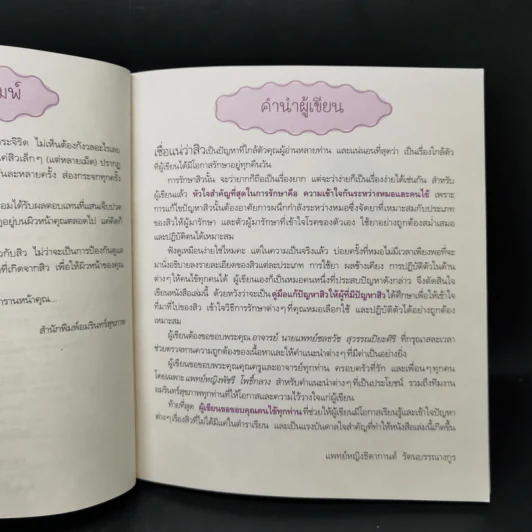 มพ์
ระจิริต ไม่เห็นต้องกังวลอะไรเลย
ค่สิวเล็กๆ (แต่หลายเม็ด) ปรากฏ
ันละหลายครั้ง ส่องกระจกทุกครั้ง
อมได้รับผลตอบแทนที่แสนเจ็บปวด
อยู่บนผิวหน้าคุณตลอดไป แค่คิดก็
วกับสิว ไม่ว่าจะเป็นการป้องกันดูแล
ที่เกิดจากสิว เพื่อให้ผิวหน้าของคุณ
รานหน้าคุณ...
สำนักพิมพ์อมรินทร์สุขภาพ
คำนำผู้เขียน
เชื่อแน่ว่าสิวเป็นปัญหาที่ใกล้ตัวคุณผู้อ่านหลายท่าน และแน่นอนที่สุดว่า เป็นเรื่องใกล้ตัว
ที่ผู้เขียนได้มีโอกาสรักษาอยู่ทุกคืนวัน
การรักษาสิวนั้น จะว่ายากก็ถือเป็นเรื่องยาก แต่จะว่าง่ายก็เป็นเรื่องง่ายได้เช่นกัน สำหรับ
ผู้เขียนแล้ว หัวใจสำคัญที่สุดในการรักษาคือ ความเข้าใจกันระหว่างหมอและคนไข้ เพราะ
การแก้ไขปัญหาสิวนั้นต้องอาศัยการผนึกกำลังระหว่างหมอซึ่งจัดยาที่เหมาะสมกับประเภท
ของสิวให้ผู้มารักษา และตัวผู้มารักษาที่เข้าใจโรคของตัวเอง ใช้ยาอย่างถูกต้องสม่ำเสมอ
และปฏิบัติตนได้เหมาะสม
ฟังดูเหมือนง่ายใช่ไหมคะ แต่ในความเป็นจริงแล้ว บ่อยครั้งที่หมอไม่มีเวลาเพียงพอที่จะ
มานั่งอธิบายลงรายละเอียดของสิวแต่ละประเภท การใช้ยา ผลข้างเคียง การปฏิบัติตัวในด้าน
ต่างๆ ให้คนไข้ทุกคนได้ ผู้เขียนเองก็เป็นหมอคนหนึ่งที่ประสบปัญหาดังกล่าว จึงตัดสินใจ
เขียนหนังสือเล่มนี้ ด้วยหวังว่าจะเป็นคู่มือแก้ปัญหาสิวให้ผู้ที่มีปัญหาสิวได้ศึกษาเพื่อให้เข้าใจ
ที่มาที่ไปของสิว เข้าใจวิธีการรักษาต่างๆ ที่คุณหมอเลือกใช้ และปฏิบัติตัวได้อย่างถูกต้อง
เหมาะสม
ผู้เขียนต้องขอขอบพระคุณ อาจารย์ นายแพทย์ชลธวัช สุวรรณปิยะศิริ ที่กรุณาสละเวลา
ช่วยตรวจทานความถูกต้องของเนื้อหาและให้คำแนะนำต่างๆ ที่มีค่าเป็นอย่างยิ่ง
ผู้เขียนขอขอบพระคุณคุณครูและอาจารย์ทุกท่าน ครอบครัวที่รัก และเพื่อนๆ ทุกคน
โดยเฉพาะแพทย์หญิงพัชรี โพธิ์กลาง สำหรับคำแนะนำต่างๆ ที่เป็นประโยชน์ รวมถึงทีมงาน
อมรินทร์สุขภาพทุกท่านที่ให้โอกาสและความไว้วางใจแก่ผู้เขียน
ท้ายที่สุด ผู้เขียนขอขอบคุณคนไข้ทุกท่านที่ช่วยให้ผู้เขียนมีโอกาสเรียนรู้และเข้าใจปัญหา
ต่างๆ เรื่องสิวที่ไม่ได้มีแค่ในตำราเรียน และเป็นแรงบันดาลใจสำคัญที่ทำให้หนังสือเล่มนี้เกิดขึ้น
แพทย์หญิงธิดากานต์ รัตนบรรณางกูร